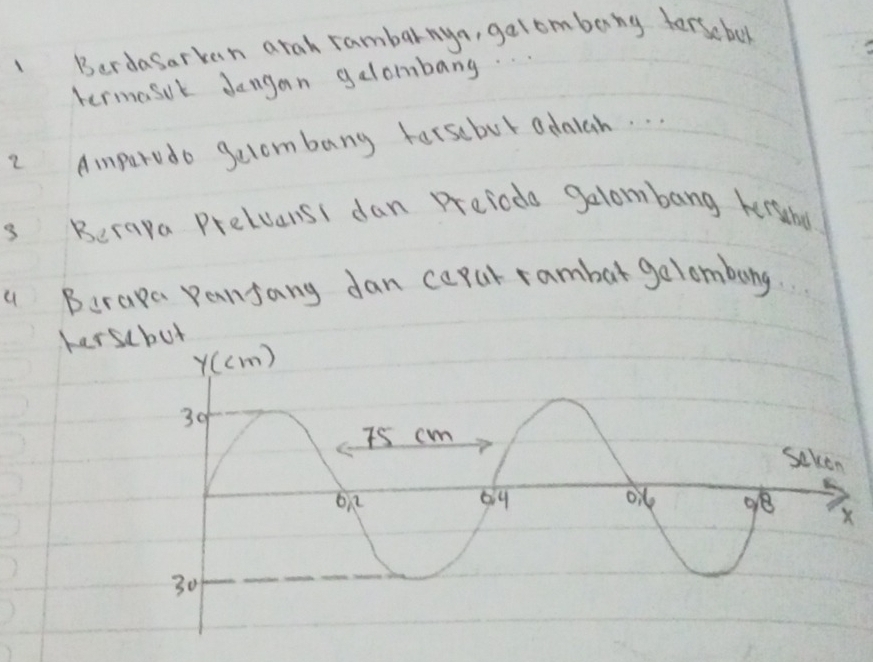 1 Berdasarkan arah rambatnya, gelombang tersebut
termasuk dengan gelombang ...
2 Amparudo gelombang tersebut adalah ...
3 Berapa Prekuensi dan Preioda gelombang tersebut
4 Berapa Panjang dan cepat rambat gelombang ...
tersebut
Y(cm)
30
75 cm
Sekon
0,2 0,4 0,6 0,8
x
30